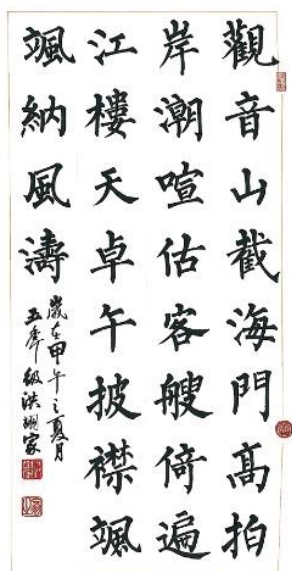 觀音山截海門高拍
岸潮喧估客艘倚遍
江樓天卓午披襟颯
颯納風濤
歲在甲午之夏月
五年級洪